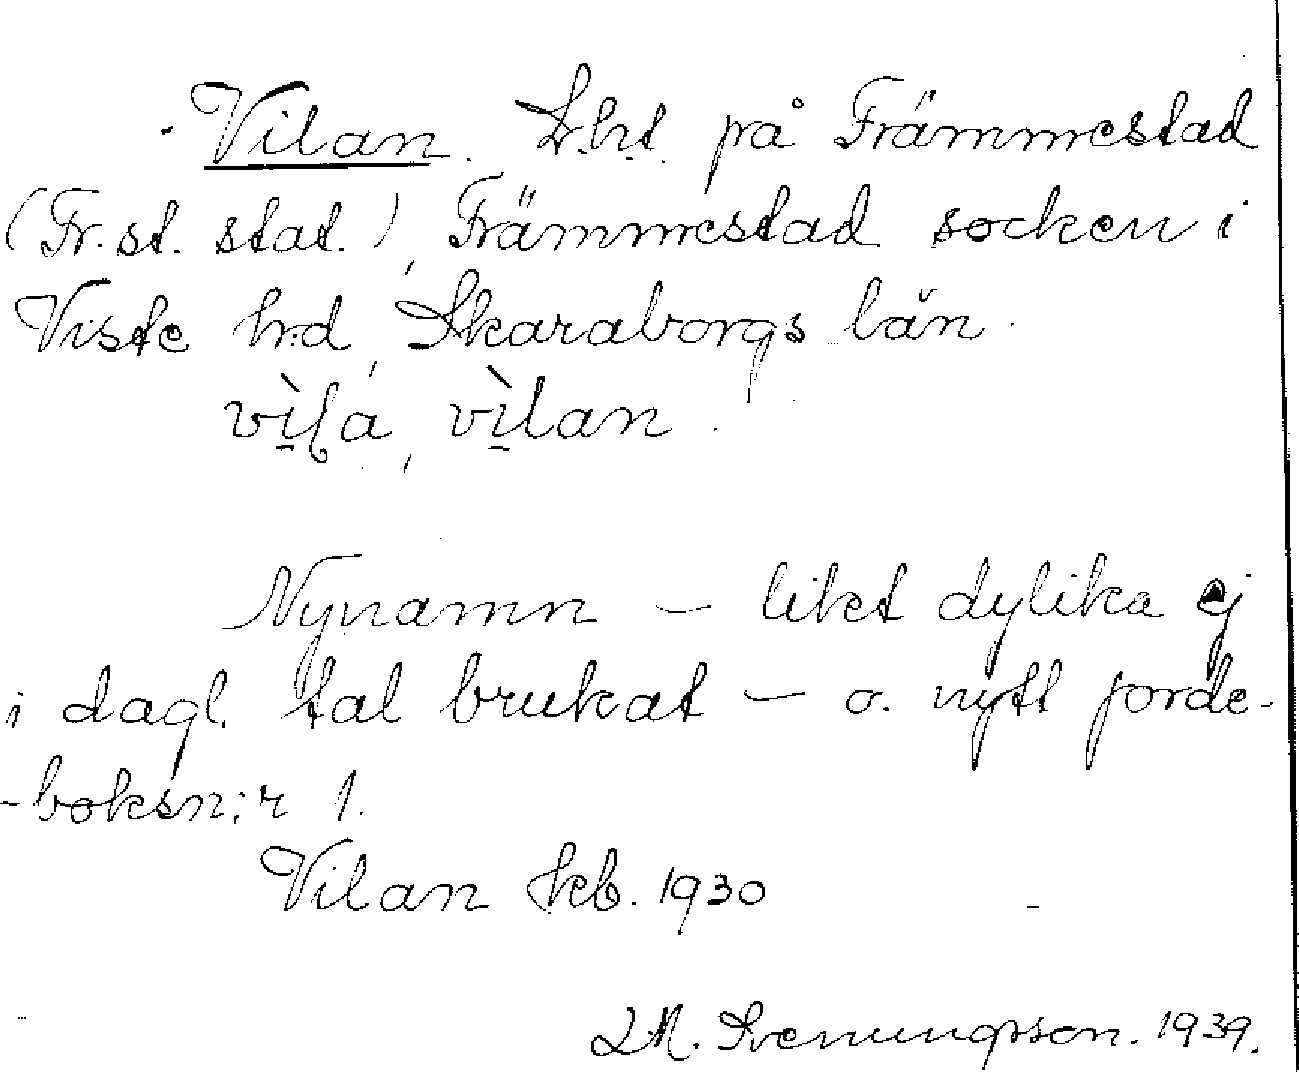 Vilan. Lht. på Främmestad
(Fr. st. stat.), Främmestad socken i
Viste hd, Skaraborgs län.
vìlá, vìlan.
Nynamn — likt dylika ej
i dagl. tal brukat — o. nytt jorde-
-boksn:r 1.
Vilan kb. 1930
L.M. Svenungsson. 1939.